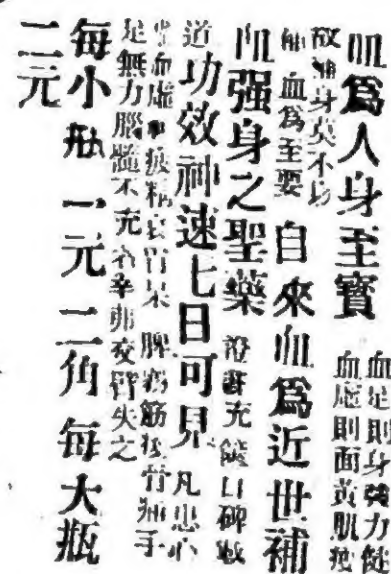 血爲人身至寶
血足則身強力健
血虛則面黃肌瘦
故補身莫不以
補血爲至要
自來血爲近世補
血强身之聖藥
證書充 口碑載
道
功效神速七日可見
凡患心
血虛神疲精衰胃呆 脾弱筋痠骨痛手
足無力腦髓不充者幸弗交臂失之
每小瓶一元二角每大瓶
二元